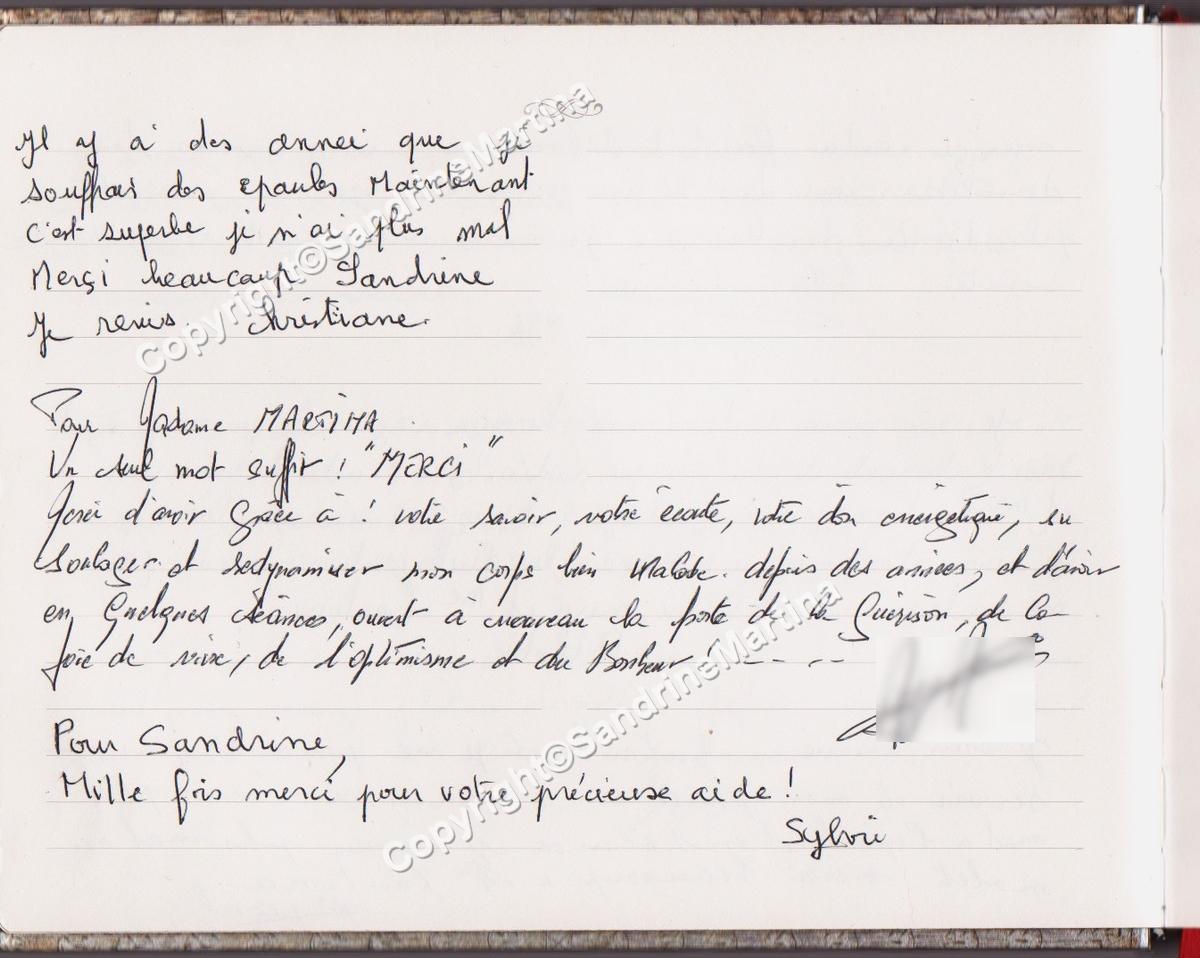 Il y a des année que je
souffrais des epaules Maintenant
c'est superbe je n'ai plus mal
Merçi beaucoup Sandrine
Je reviis Christiane.
Pour Madame MARTINA
Un seul mot suffit ! "MERCI"
d'avoir Grâce à ! votre savoir, votre écoute, votre don énergétique, su
soulager et redynamiser mon corps bien malade depuis des années, et d'avoir
en Quelques séances, ouvert à nouveau la porte de la Guérison, de la
Joie de vivre, de l'optimisme et du Bonheur ! - - - -
Pour Sandrine,
Mille fois merci pour votre précieuse aide !
Sylvie
Copyright©SandrineMartina
Copyright©SandrineMartina